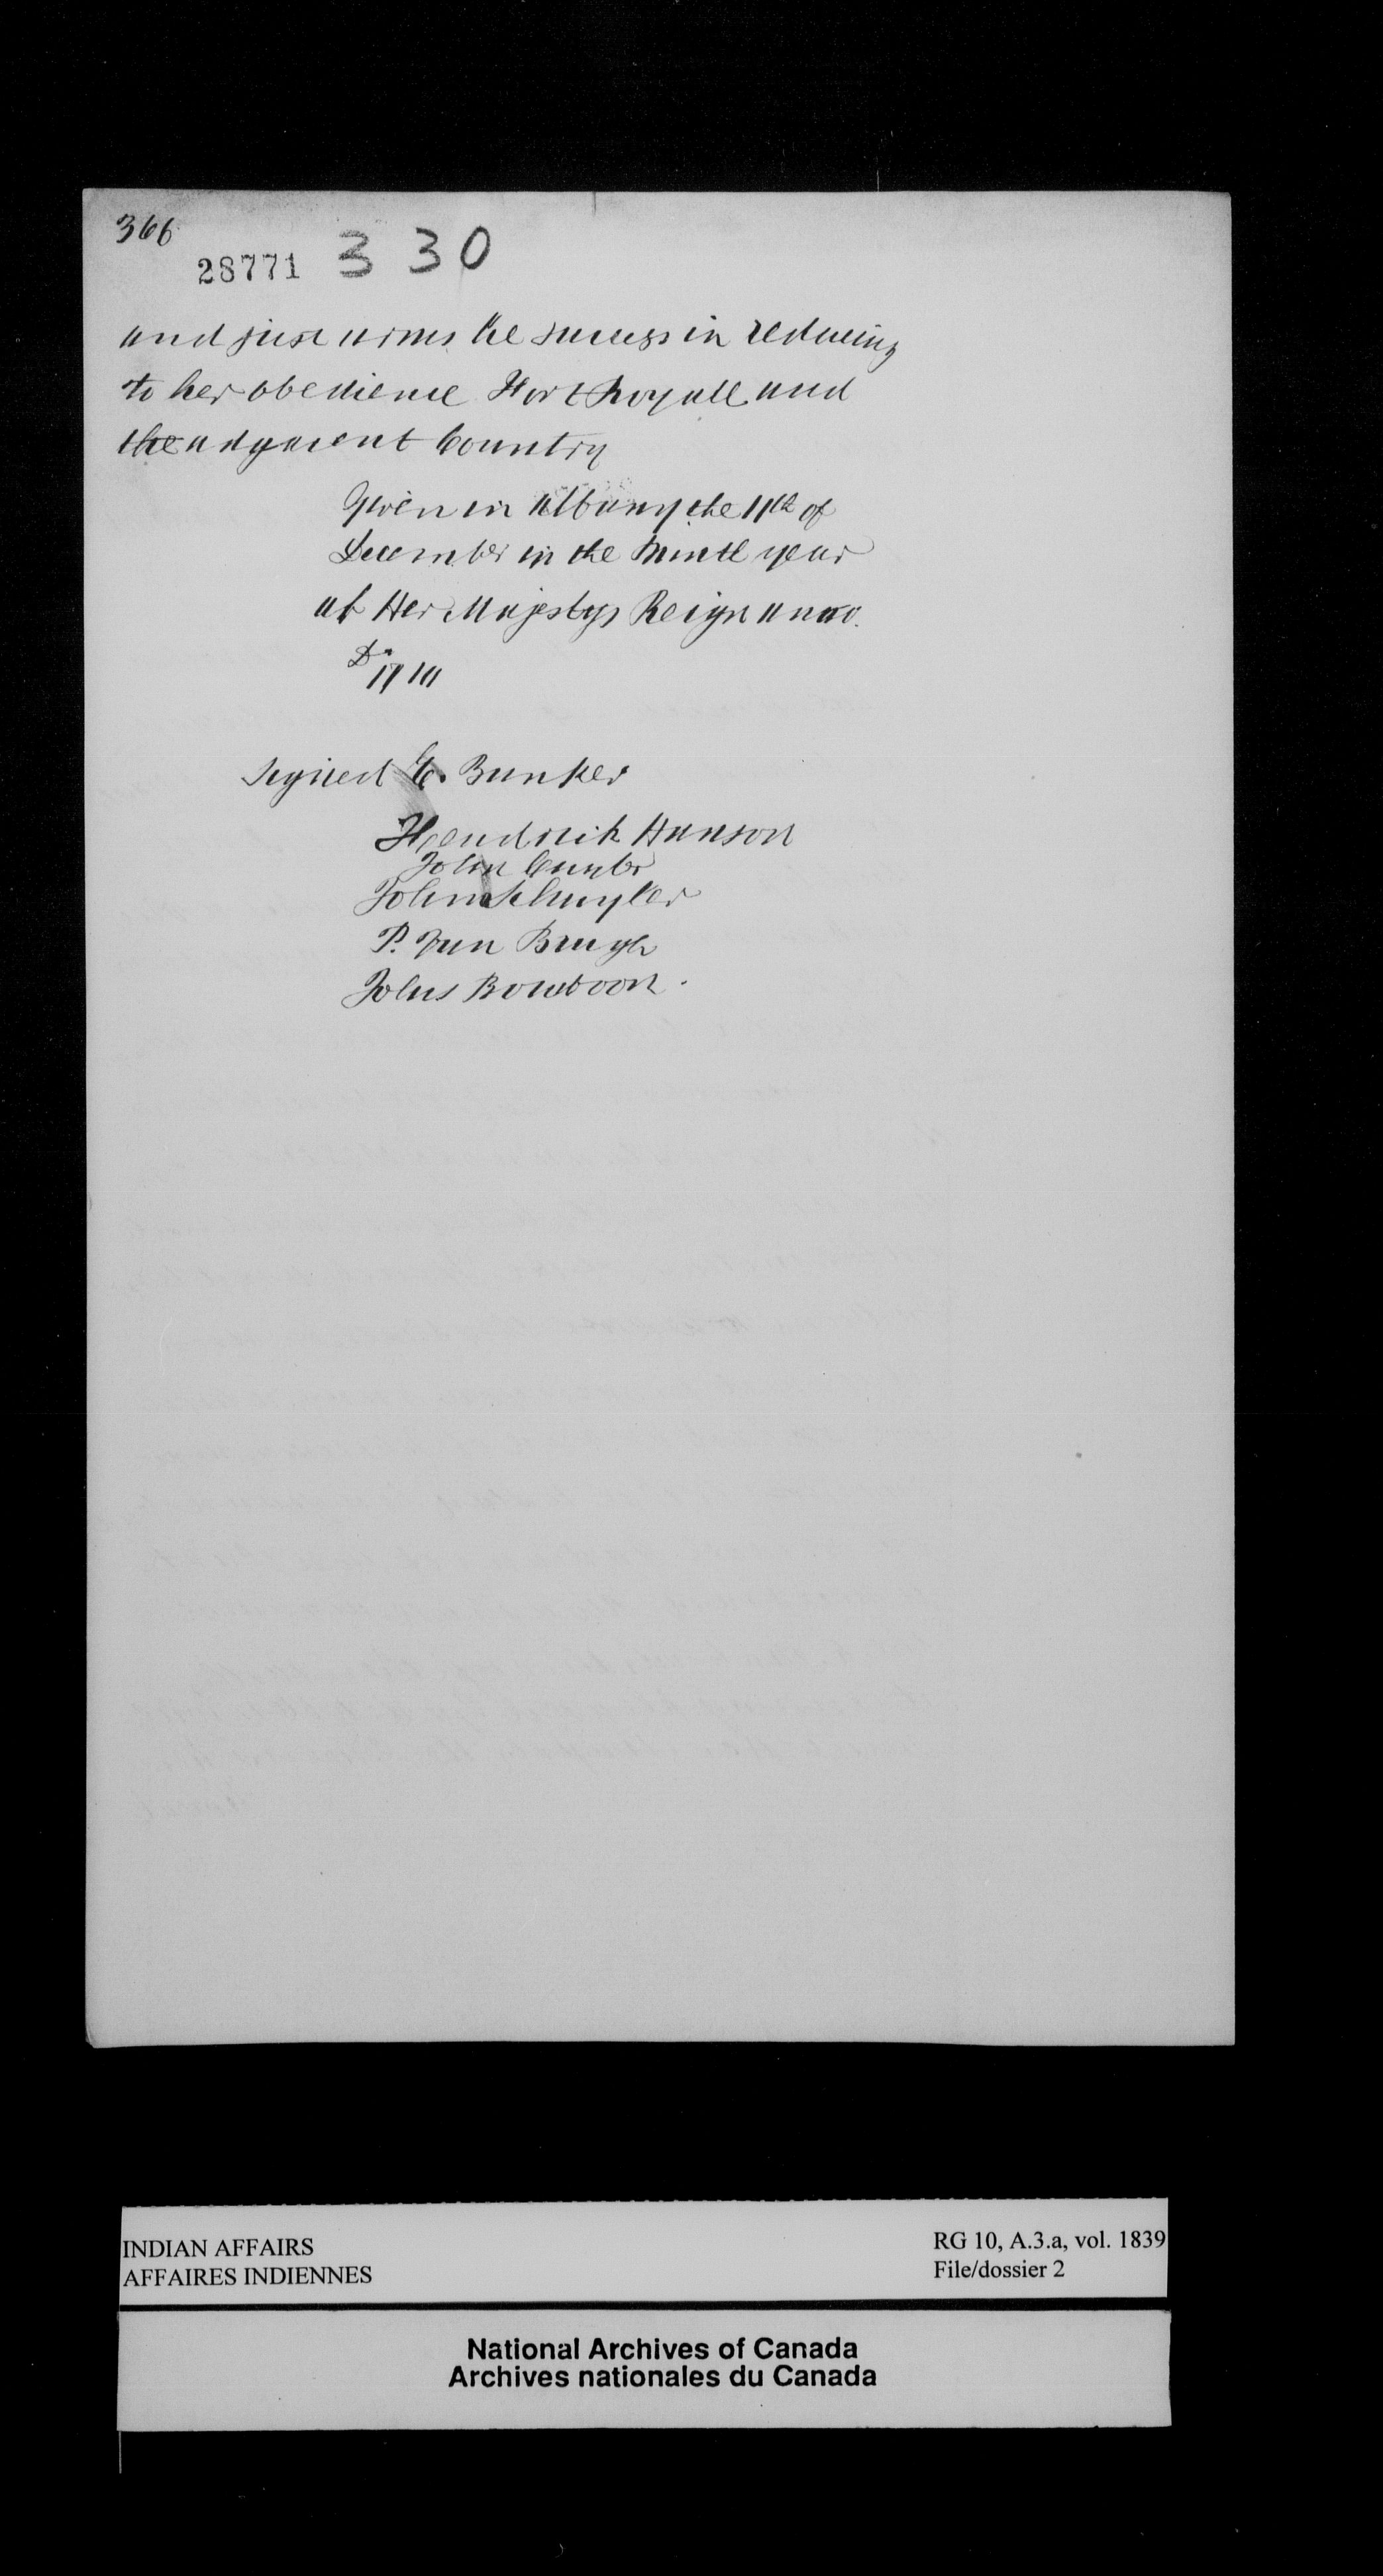 366
28771 330
and just arms the success in reducing
to her obedience Fort Royall and
the adyacent Country
Given in Albany the 11th of
December in the Ninth year
of Her Majestys Reign anno.
Do 1710
Signed E. Banker
Hendrick Hanson
John Cuyler
John Schuyler
P. Van Brugh
Johs Rowboon.
INDIAN AFFAIRS
AFFAIRES INDIENNES
RG 10, A.3.a, vol. 1839
File/dossier 2
National Archives of Canada
Archives nationales du Canada